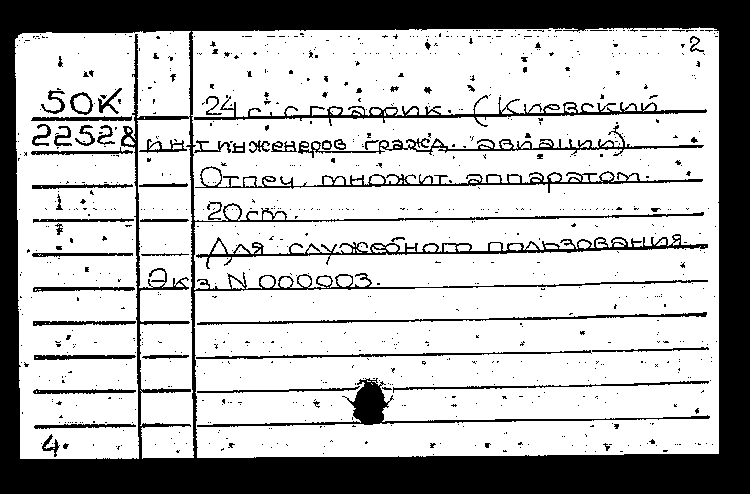 2
50К 24 с. с график. (Киевский
22528 ин-т инженеров гражд. авиации).
Отпеч. множит. аппаратом.
20 cm.
Для служебного пользования
Экз. N 000003.
4.